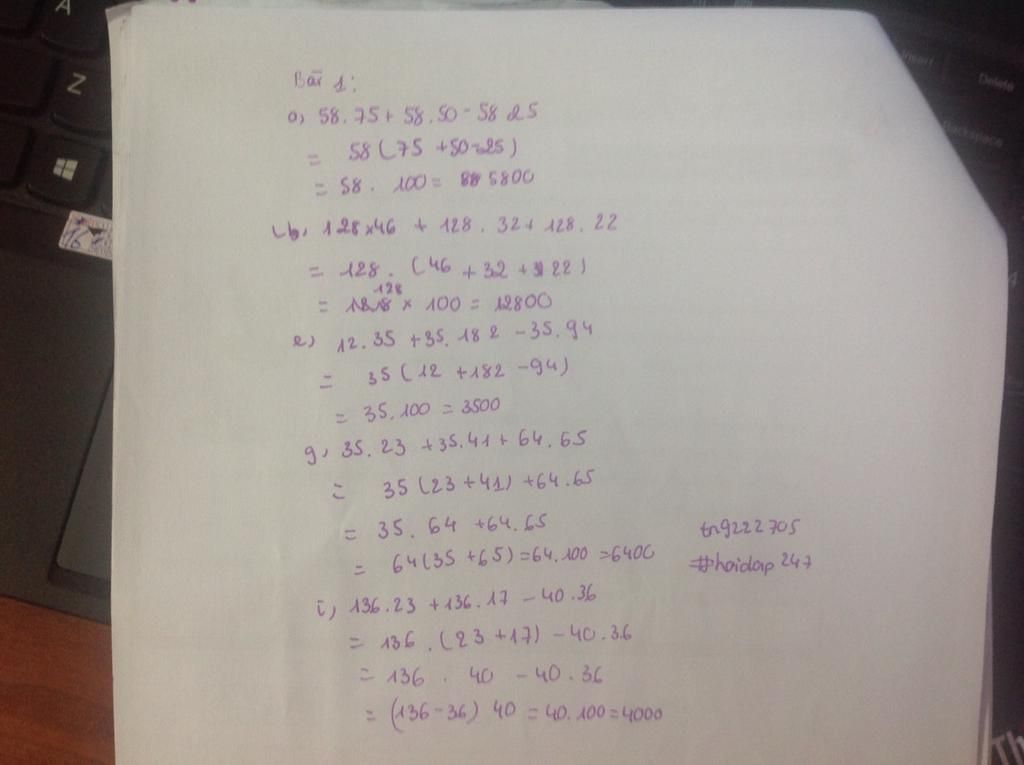 A
Z
Insert
Delete
Backspace
Bài 1:
a, 58.75 + 58.50 - 58 25
= 58 (75 + 50 - 25)
= 58 . 100 = 5800
b, 128 x 46 + 128 . 32 + 128 . 22
= 128 . (46 + 32 + 22)
= 128 x 100 = 12800
e) 12.35 + 35.182 - 35.94
= 35 (12 + 182 - 94)
= 35.100 = 3500
g, 35.23 + 35.41 + 64.65
= 35 (23 + 41) + 64.65
= 35.64 + 64.65
= 64 (35 + 65) = 64.100 = 6400
tn9222705
#hoidap247
i, 136.23 + 136.17 - 40.36
= 136 . (23 + 17) - 40.36
= 136 . 40 - 40.36
= (136 - 36) 40 = 40.100 = 4000
Th